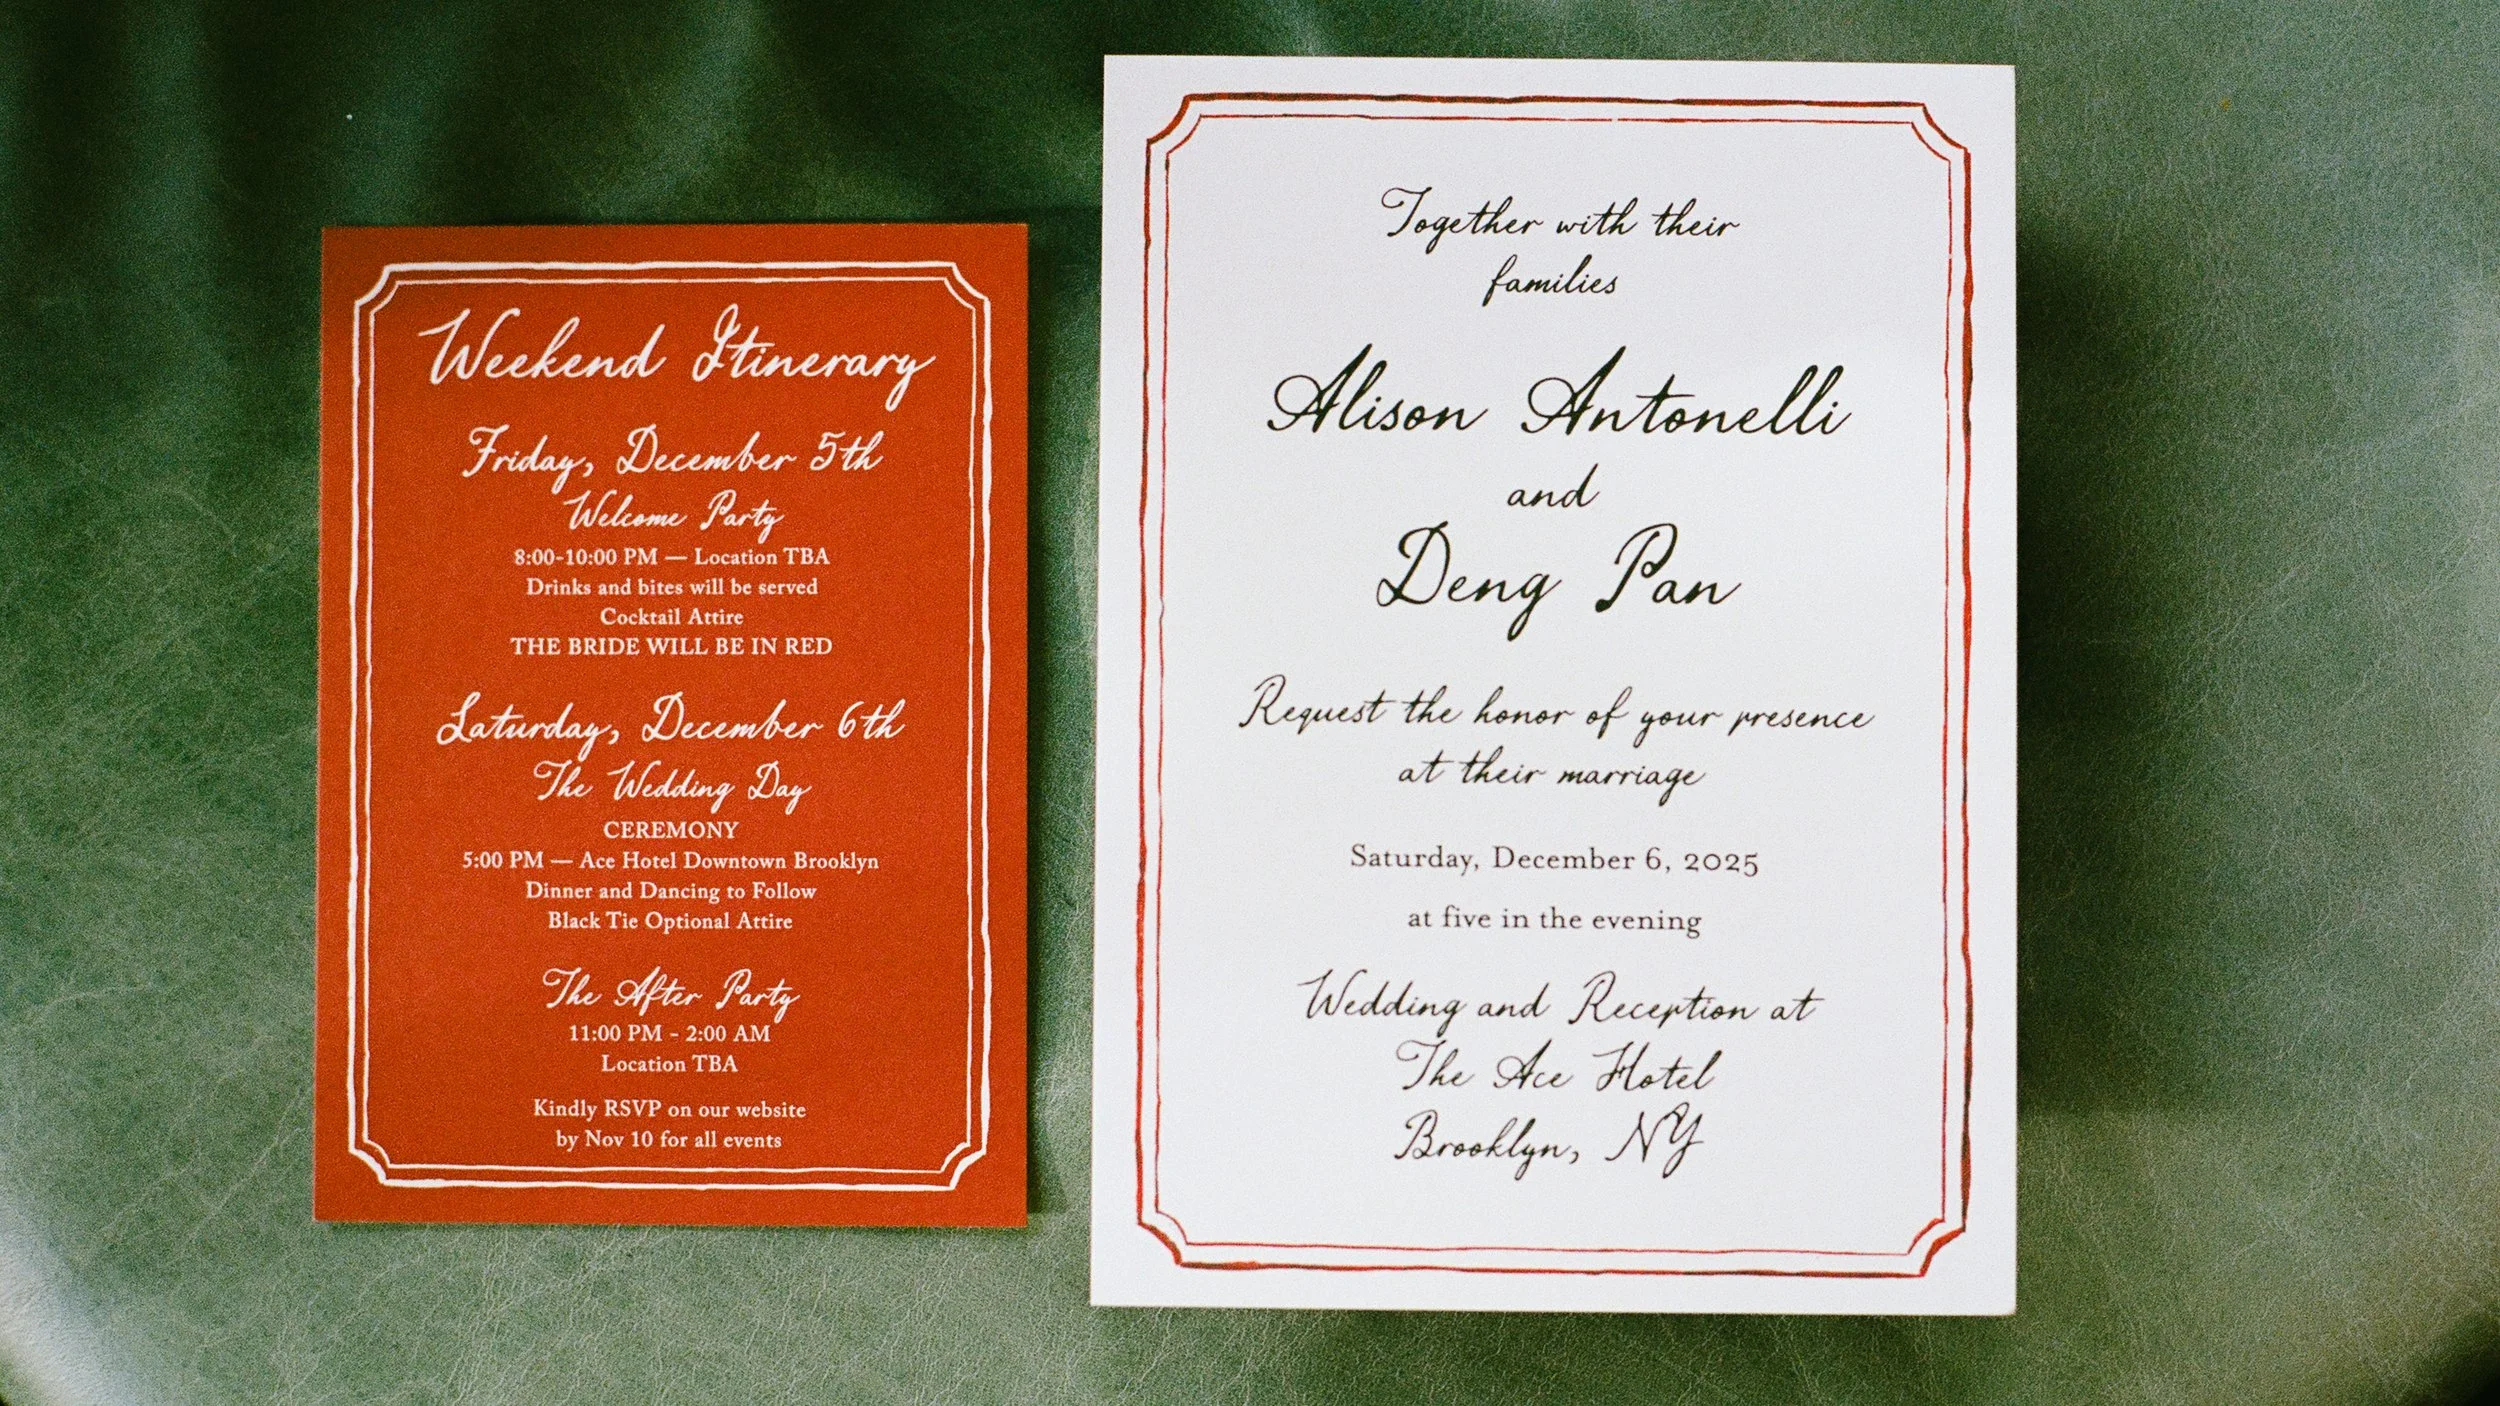 Weekend Itinerary
Friday, December 5th
Welcome Party
8:00-10:00 PM — Location TBA
Drinks and bites will be served
Cocktail Attire
THE BRIDE WILL BE IN RED
Saturday, December 6th
The Wedding Day
CEREMONY
5:00 PM — Ace Hotel Downtown Brooklyn
Dinner and Dancing to Follow
Black Tie Optional Attire
The After Party
11:00 PM - 2:00 AM
Location TBA
Kindly RSVP on our website
by Nov 10 for all events
Together with their
families
Alison Antonelli
and
Deng Pan
Request the honor of your presence
at their marriage
Saturday, December 6, 2025
at five in the evening
Wedding and Reception at
The Ace Hotel
Brooklyn, NY